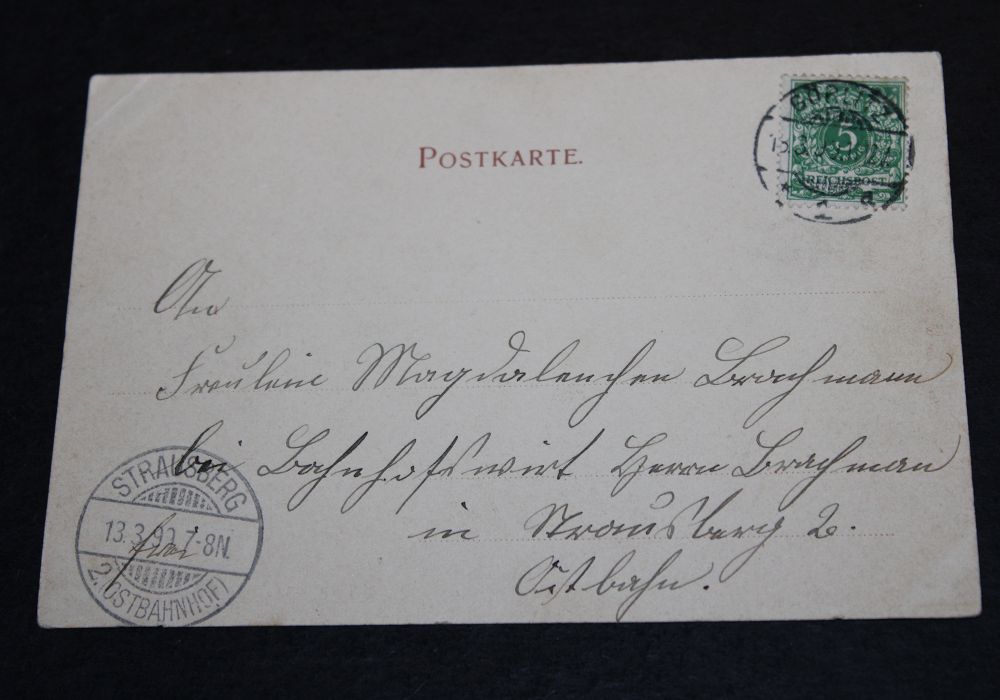 POSTKARTE.
GÖRLITZ
13.3.
1 d
5
REICHSPOST
An
Fräulein Magdalenchen Brachmann
bei Bahnhofswirt Herrn Brachmann
in Strausberg 2.
Ostbahn.
frei
STRAUSBERG
13.3.99.7-8N.
2.(OSTBAHNHOF)